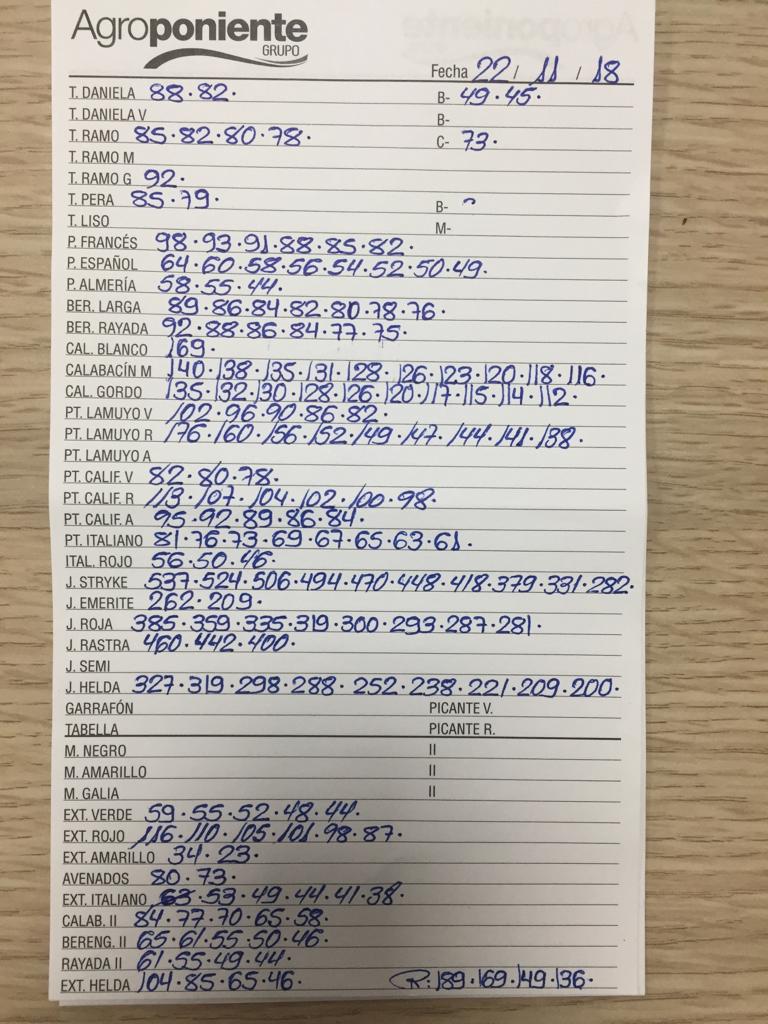 Agroponiente
GRUPO
Fecha 22 / 11 / 18
T. DANIELA 88·82· B- 49·45·
T. DANELA V B-
T. RAMO 85·82·80·78· C- 73·
T. RAMO M
T. RAMO G 92·
T. PERA 85·79· B-
T. LISO M-
P. FRANCÉS 98·93·91·88·85·82·
P. ESPAÑOL 64·60·58·56·54·52·50·49·
P. ALMERÍA 58·55·44·
BER. LARGA 89·86·84·82·80·78·76·
BER. RAYADA 92·88·86·84·77·75·
CAL. BLANCO 169·
CALABACÍN M 140·138·135·131·128·126·123·120·118·116·
CAL. GORDO 135·132·130·128·126·120·117·115·114·112·
PT. LAMUYO V 102·96·90·86·82·
PT. LAMUYO R 176·160·156·152·149·147·144·141·138·
PT. LAMUYO A
PT. CALIF. V 82·80·78·
PT. CALIF. R 113·107·104·102·100·98·
PT. CALIF. A 95·92·89·86·84·
PT. ITALIANO 81·76·73·69·67·65·63·61·
ITAL. ROJO 56·50·46·
J. STRYKE 537·524·506·494·470·448·418·379·331·282·
J. EMERITE 262·209·
J. ROJA 385·359·335·319·300·293·287·281·
J. RASTRA 460·442·400·
J. SEMI
J. HELDA 327·319·298·288·252·238·221·209·200·
GARRAFÓN PICANTE V.
TABELLA PICANTE R.
M. NEGRO II
M. AMARILLO II
M. GALIA II
EXT. VERDE 59·55·52·48·44·
EXT. ROJO 116·110·105·101·98·87·
EXT. AMARILLO 34·23·
AVENADOS 80·73·
EXT. ITALIANO 53·49·44·41·38·
CALAB. II 84·77·70·65·58·
BERENG. II 65·61·55·50·46·
RAYADA II 61·55·49·44·
EXT. HELDA 104·85·65·46· R: 189·169·149·136·